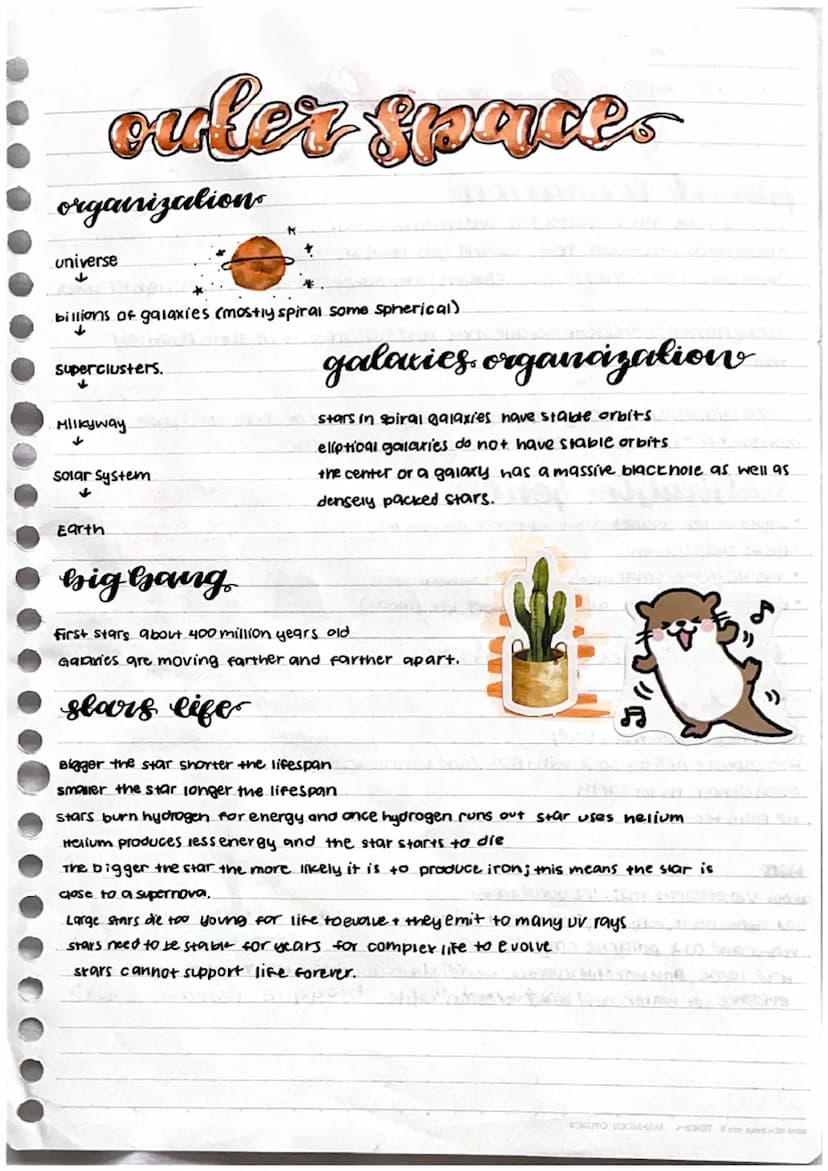 outer space
organization
universe
↓
billions of galaxies (mostly spiral some spherical)
↓
superclusters.
↓
Milkyway
↓
Solar System
↓
Earth
galaxies organization
stars in spiral galaxies have stable orbits
elliptical galaxies do not have stable orbits
the center or a galaxy has a massive blackhole as well as
densely packed stars.
big bang
first stars about 400 million years old
Galaxies are moving farther and farther apart.
stars life
Bigger the star shorter the lifespan
smaller the star longer the lifespan
stars burn hydrogen for energy and once hydrogen runs out star uses helium
Helium produces less energy and the star starts to die
The bigger the star the more likely it is to produce iron; this means the star is
close to a supernova.
Large stars die too young for life to evolve + they emit to many UV rays
stars need to be stable for years for complex life to evolve
stars cannot support life forever.